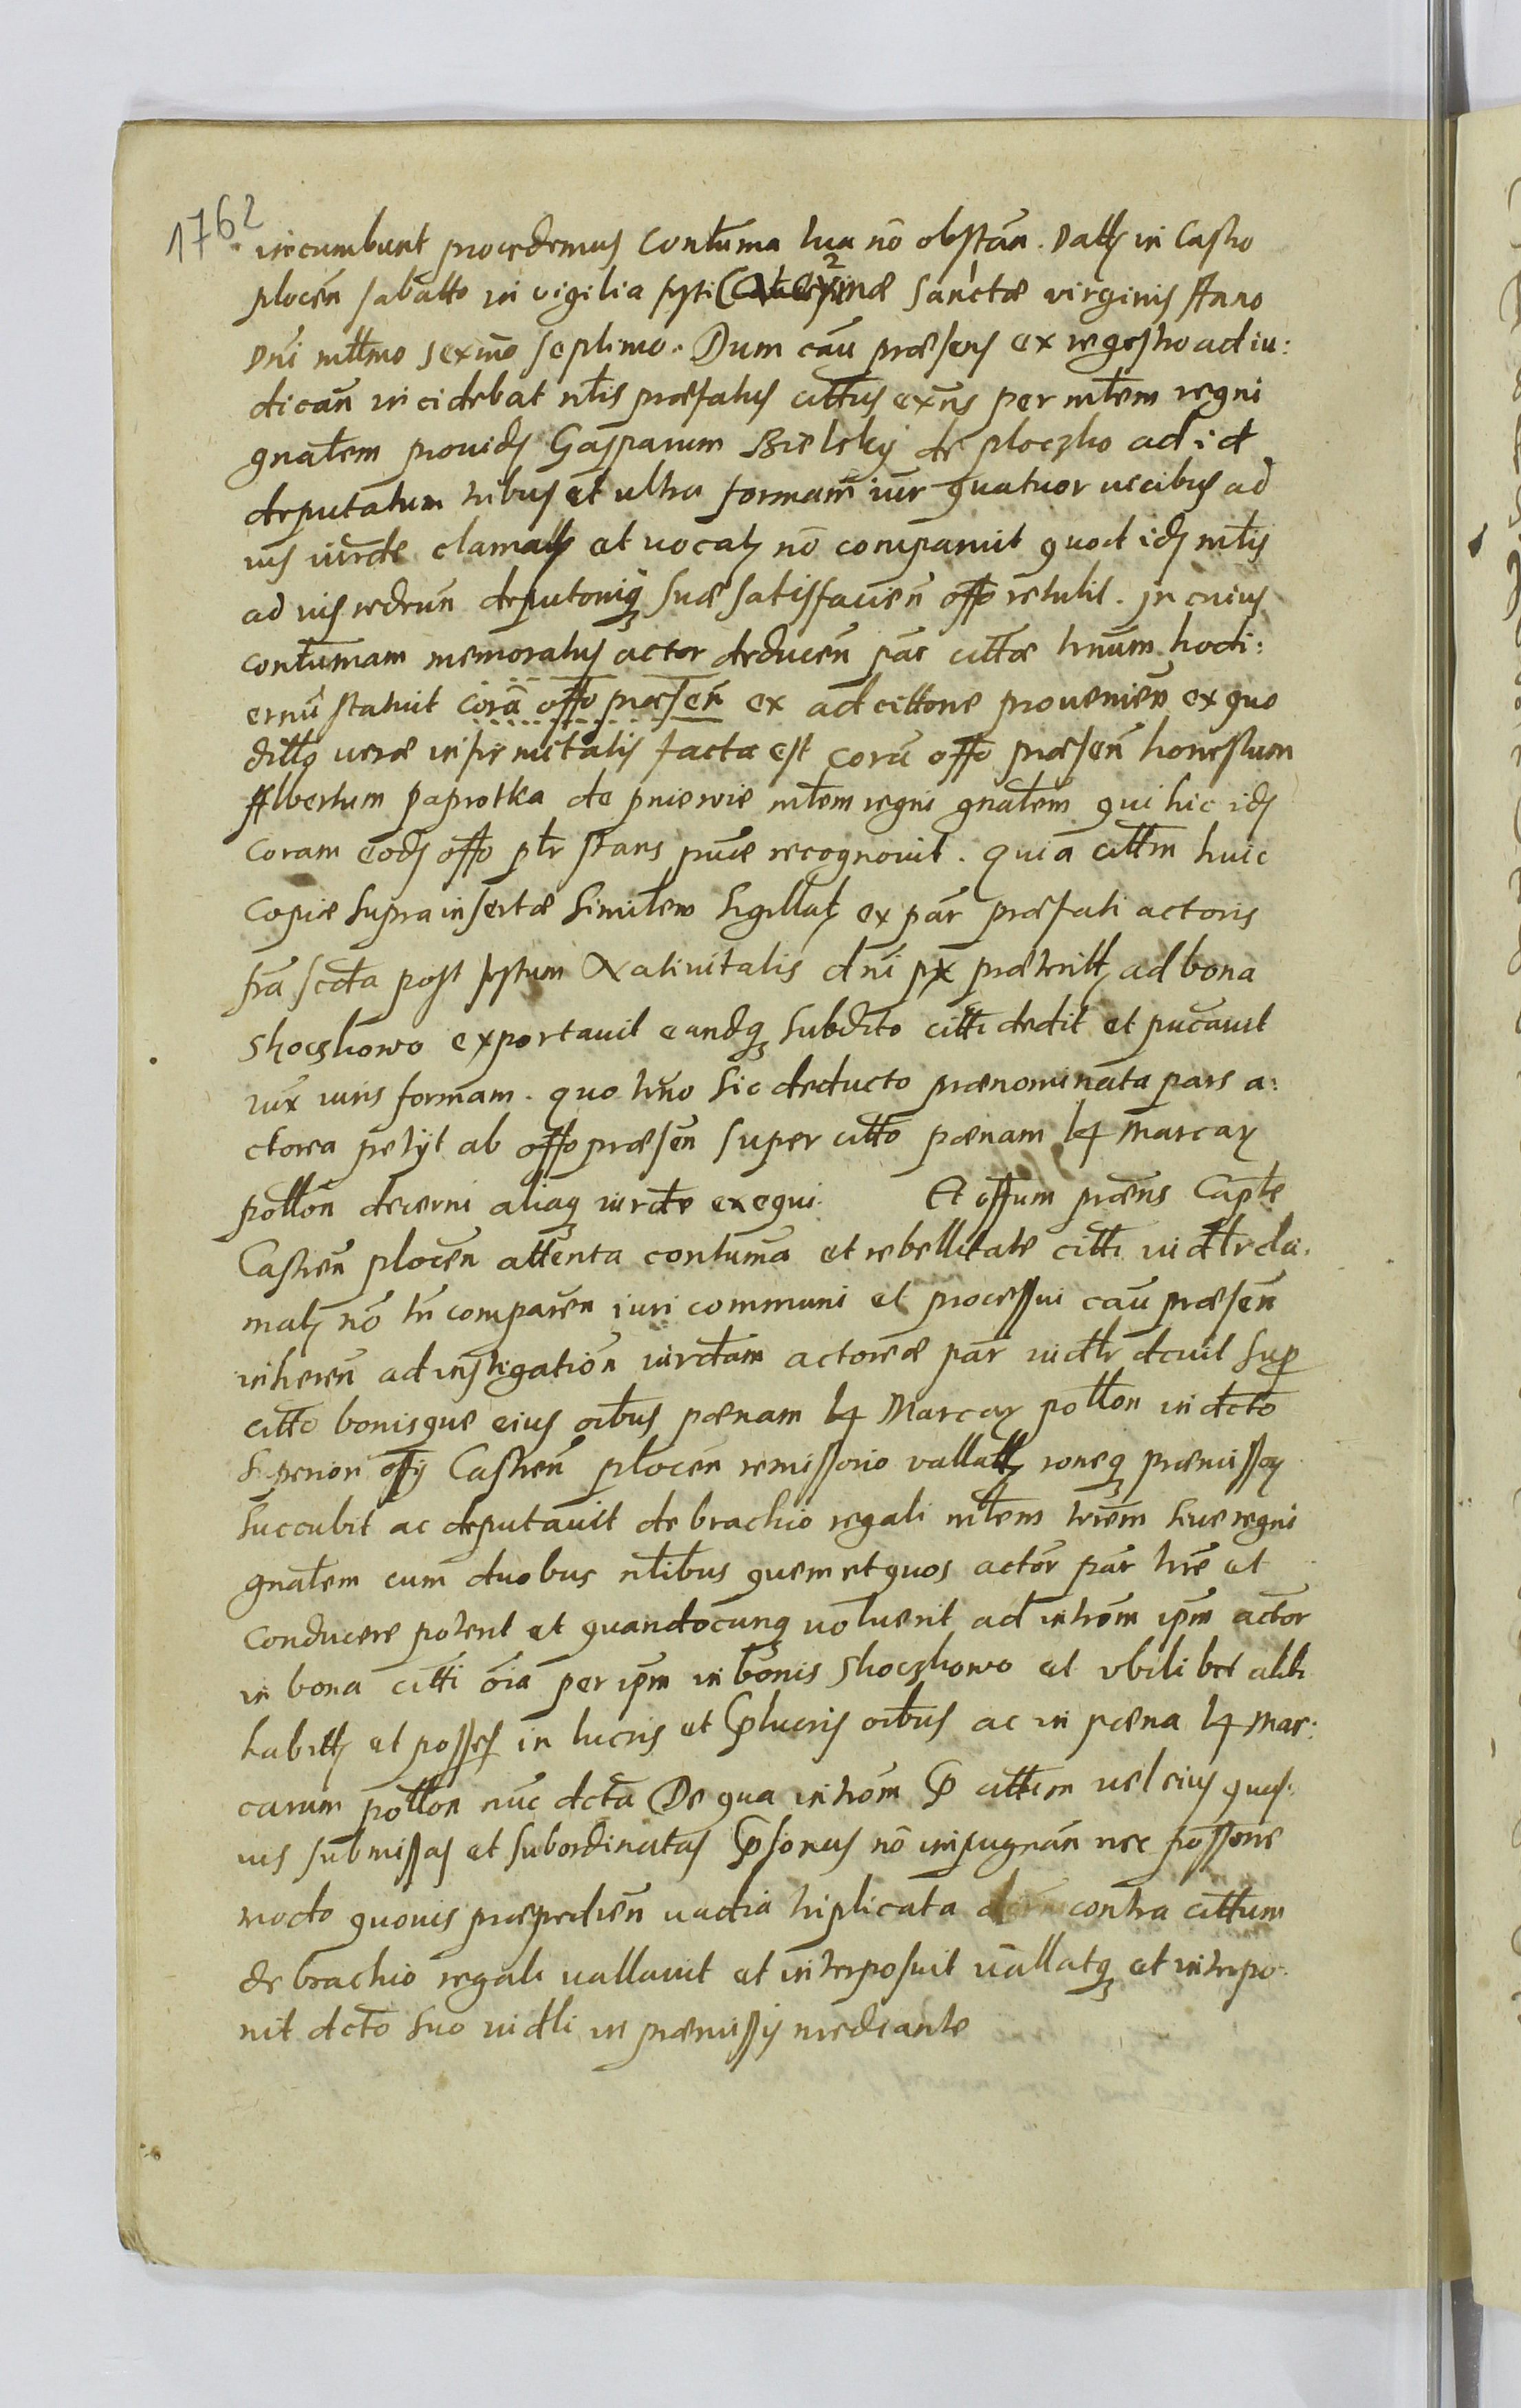 1762
incumbunt procedemus contuma tua nõ obstañ. Datt in Castro
plocen̄ sabatto in vigilia festi sanctæ virginis Anno
Dni millmo sexmo septimo. Dum cau præsens ex regestro adiu:
dican̄ incidebat nlis præfatus cittus exn̄s per mltem regni
gnalem prouidū Gasparum Bielsky de ploczko ad id
deputatum tribus et ultra formam iur quatuor uicibus ad
ius iurdte clamatq et uocatq nō comparuit quod idē mltis
ad ius redeun̄ deputoniq suæ satisfacien̄ offo retulit. In cuius
contumam memoratus actor deducen̄ par cittæ trnum hodi:
ernū statuit corā offo præsen̄ ex ad cittone prouenien̄ ex quo
ditto veræ infirmitatis facta est corā offo præsen̄ honestum
Albertum Paprotka de pniewie mltem regni gnalem qui hic idē
coram eodē offo pltr stans puce recognouit. Quia cittm huic
copiæ supra insertæ similem sigillatq ex par præfati actoris
fra scda post festum Natiuitatis dni px præteritt ad bona
Skoczkowo exportauit eandq subdito citti dedit et pucauit
iux iuris formam. quo trno sic deducto prænominata pars a:
ctorea petyt ab offo præsen super citto pænam 14 marcaꝝ
pollon decerni aliaq iurdte exequi. Et offum præns Capte
Castren̄ plocen attenta contuma et rebellitate citti uidtr cla:
matq nō tn comparen iuri communi et processui cau præsen̄
inheren̄ ad instigation iurdtam actoreæ par uidtr dcuit sup
citto bonisque eius oibus pænam 14 Marcaꝝ pollon in dcto
superiori offy Castren̄ plocen remissorio vallatq roneq præmissoꝝ
succubit ac deputauit de brachio regali mltem triem siue regni
gnalem cum duobus nlibus quem et quos actor par hre et
conducere poterit et quandocunq uoluerit ad introm ipm actor
in bona citti oia per ipm in bonis Skoczkowo et vbilibet alibi
habittq et posses in lucris et ꝑlucris oibus ac in pæna 14 Mar:
carum pollon nūc dcta De qua introm ꝑ cittum uel eius quas:
uis submissas et subordinatas ꝑsonas nō impugnan̄ nec possone
modo quouis præpedien̄ uadia triplicata contra cittum
de brachio regali uallauit et interposuit uallatq et interpo:
nit dcto suo uidli in præmissis mediante